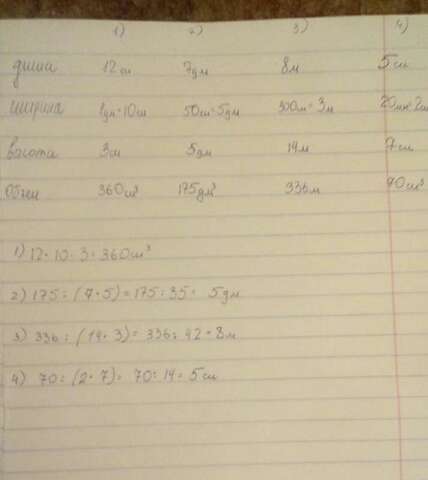 1) 2) 3) 4)
длина 12см 7дм 8м 5см
ширина 1дм=10см 50см=5дм 300см=3м 20мм=2см
высота 3см 5дм 14м 7см
объем 360см³ 175дм³ 336м 70см³
1) 12·10·3=360см³
2) 175:(7·5)=175:35= 5дм
3) 336:(14·3)=336:42=8м
4) 70:(2·7)= 70:14=5см